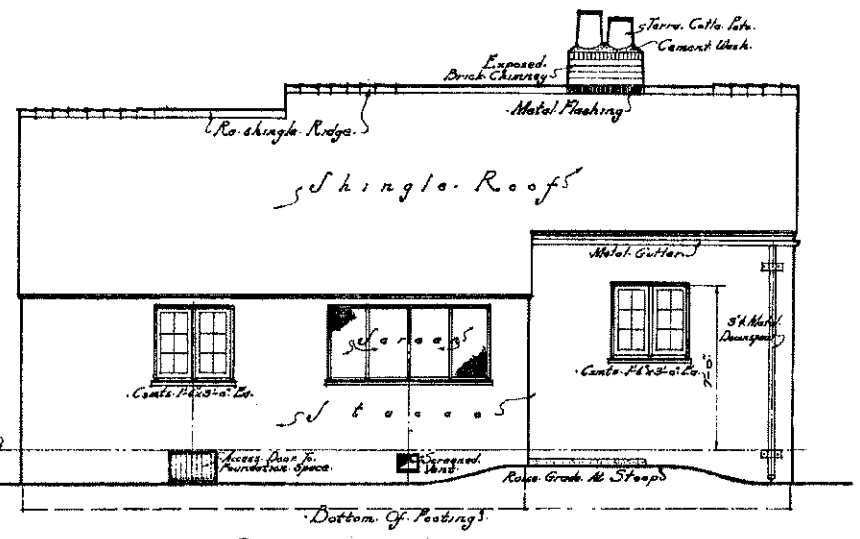 Terra. Cotta. Pots.
Cement Wash.
Exposed.
Brick Chimney
Metal Flashing
Ro. shingle. Ridge.
Shingle. Roof
Metal. Gutter
3"ø Metal.
Downspout
Screen
Csmts. 1'-6"x3'-0" Ea.
Csmts. 1'-6"x3'-0" Ea.
7'-0"
Stucco
Access. Door To.
Foundation. Space.
Screened.
Vent.
Raise Grade At Stoop
Bottom Of Footings